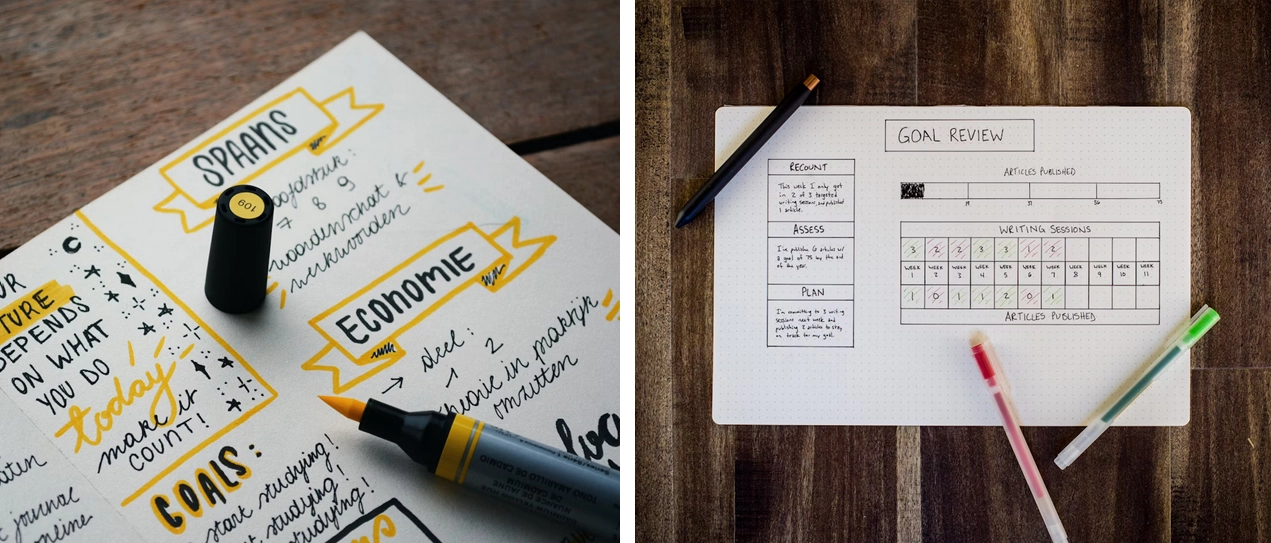 SPAANS
hoofdstuk:
7 8 9
woordenschat &
werkwoorden
ECONOMIE
→ deel:
1 2
theorie in praktijk
omzetten
TURE
DEPENDS
ON WHAT
YOU DO
today
make it
COUNT!
GOALS:
start studying!
studying!
studying!
journal
109
TONO AMARILLO DE CADMIO
NUANCE DE JAUNE
DE CADMIUM
GOAL REVIEW
RECOUNT
This week I only got
in 2 of 3 targeted
writing sessions, and published
1 article.
ASSESS
I've publishe 6 articles w/
a goal of 75 by the end
of the year.
PLAN
I'm committing to 3 writing
sessions next week and
publishing 2 articles to stay
on track for my goal.
ARTICLES PUBLISHED
19 37 56 75
WRITING SESSIONS
3 2 2 3 3 1 2
WEEK 1 WEEK 2 WEEK 3 WEEK 4 WEEK 5 WEEK 6 WEEK 7 WEEK 8 WEEK 9 WEEK 10 WEEK 11
1 0 1 1 2 0 1
ARTICLES PUBLISHED